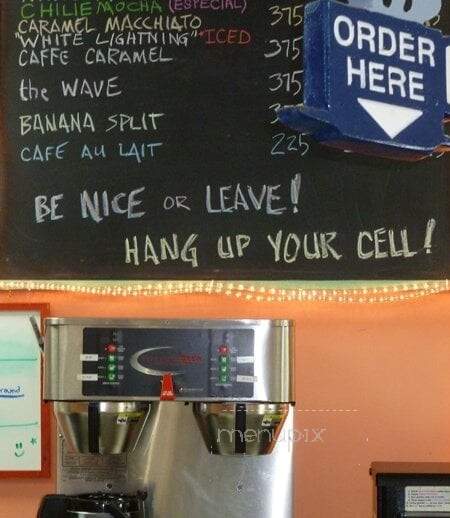 CHILIE MOCHA (ESPECIAL)
CARAMEL MACCHIATO 375
"WHITE LIGHTNING" *ICED
CAFFE CARAMEL 375
the WAVE 375
BANANA SPLIT
CAFE AU LAIT 225
ORDER
HERE
BE NICE OR LEAVE!
HANG UP YOUR CELL!
menupix